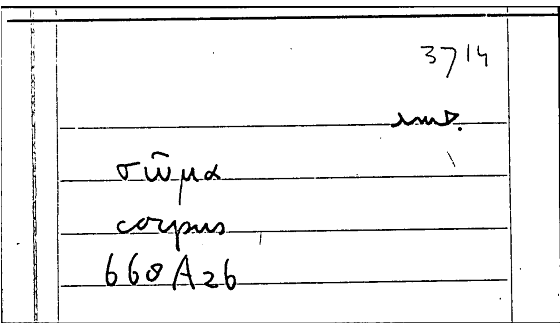 3714
σῶμα
corpus
668A26